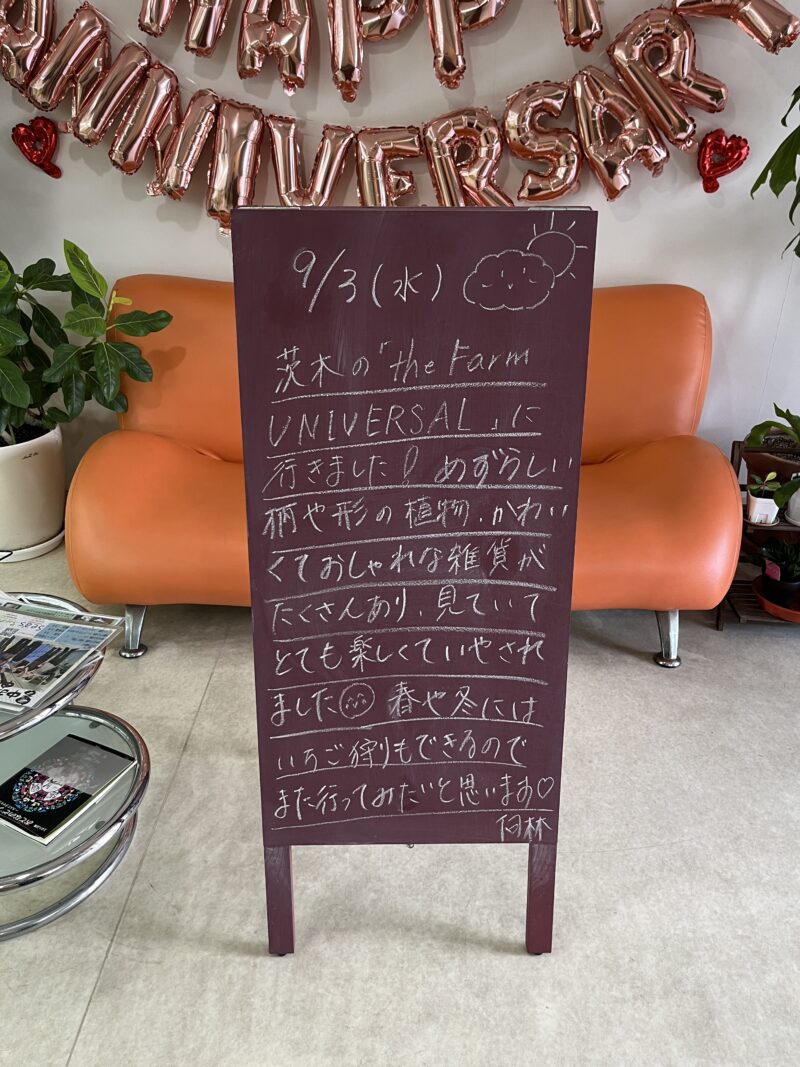 HAPPY
ANNIVERSARY
9/3(水)
茨木の「the Farm
UNIVERSAL」に
行きました！めずらしい
柄や形の植物、かわい
くておしゃれな雑貨が
たくさんあり、見ていて
とても楽しくていやされ
ました 春や冬には
いちご狩りもできるので
また行ってみたいと思います♡